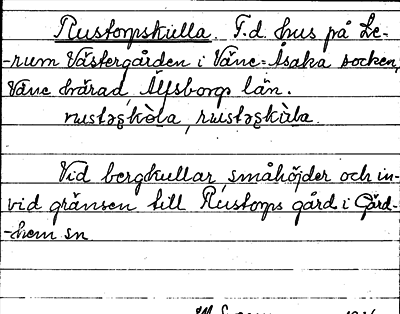 Rustorpskulla. F.d. hus på Le-
-rum Västergården i Väne-Åsaka socken,
Väne härad, Älfsborgs län.
rustəʂkòla, rustəʂkùla.
Vid bergkullar, småhöjder och in-
vid gränsen till Rustorps gård i Gärd-
-hem sn